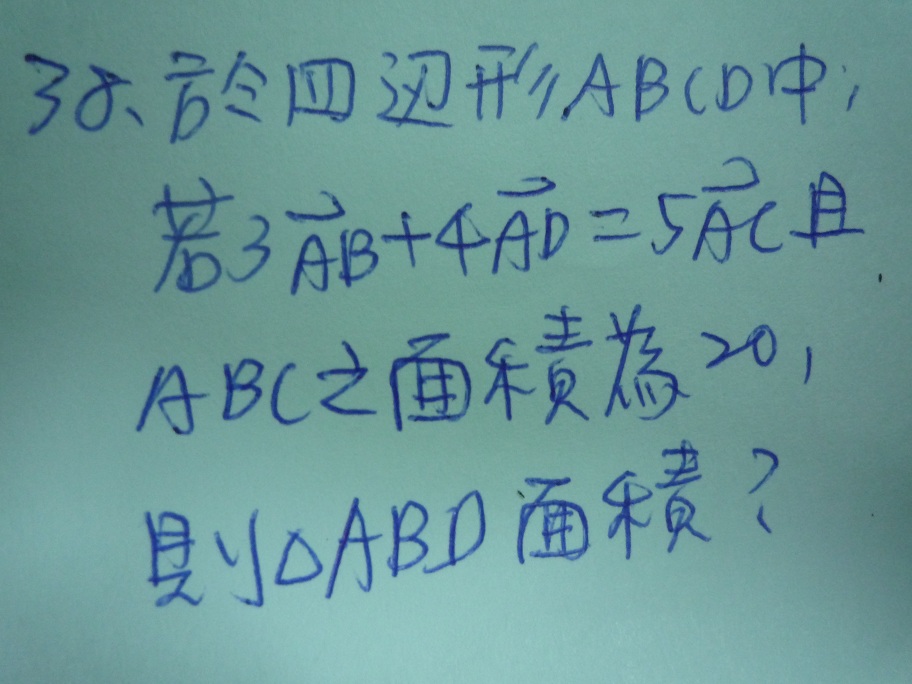 38、於四边形ABCD中,
若3AB+4AD=5AC且
ABC之面積為20,
則△ABD面積?